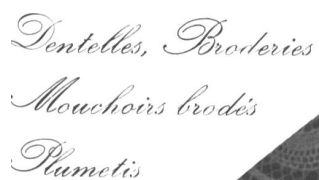 Dentelles, Broderies
Mouchoirs brodés
Plumetis